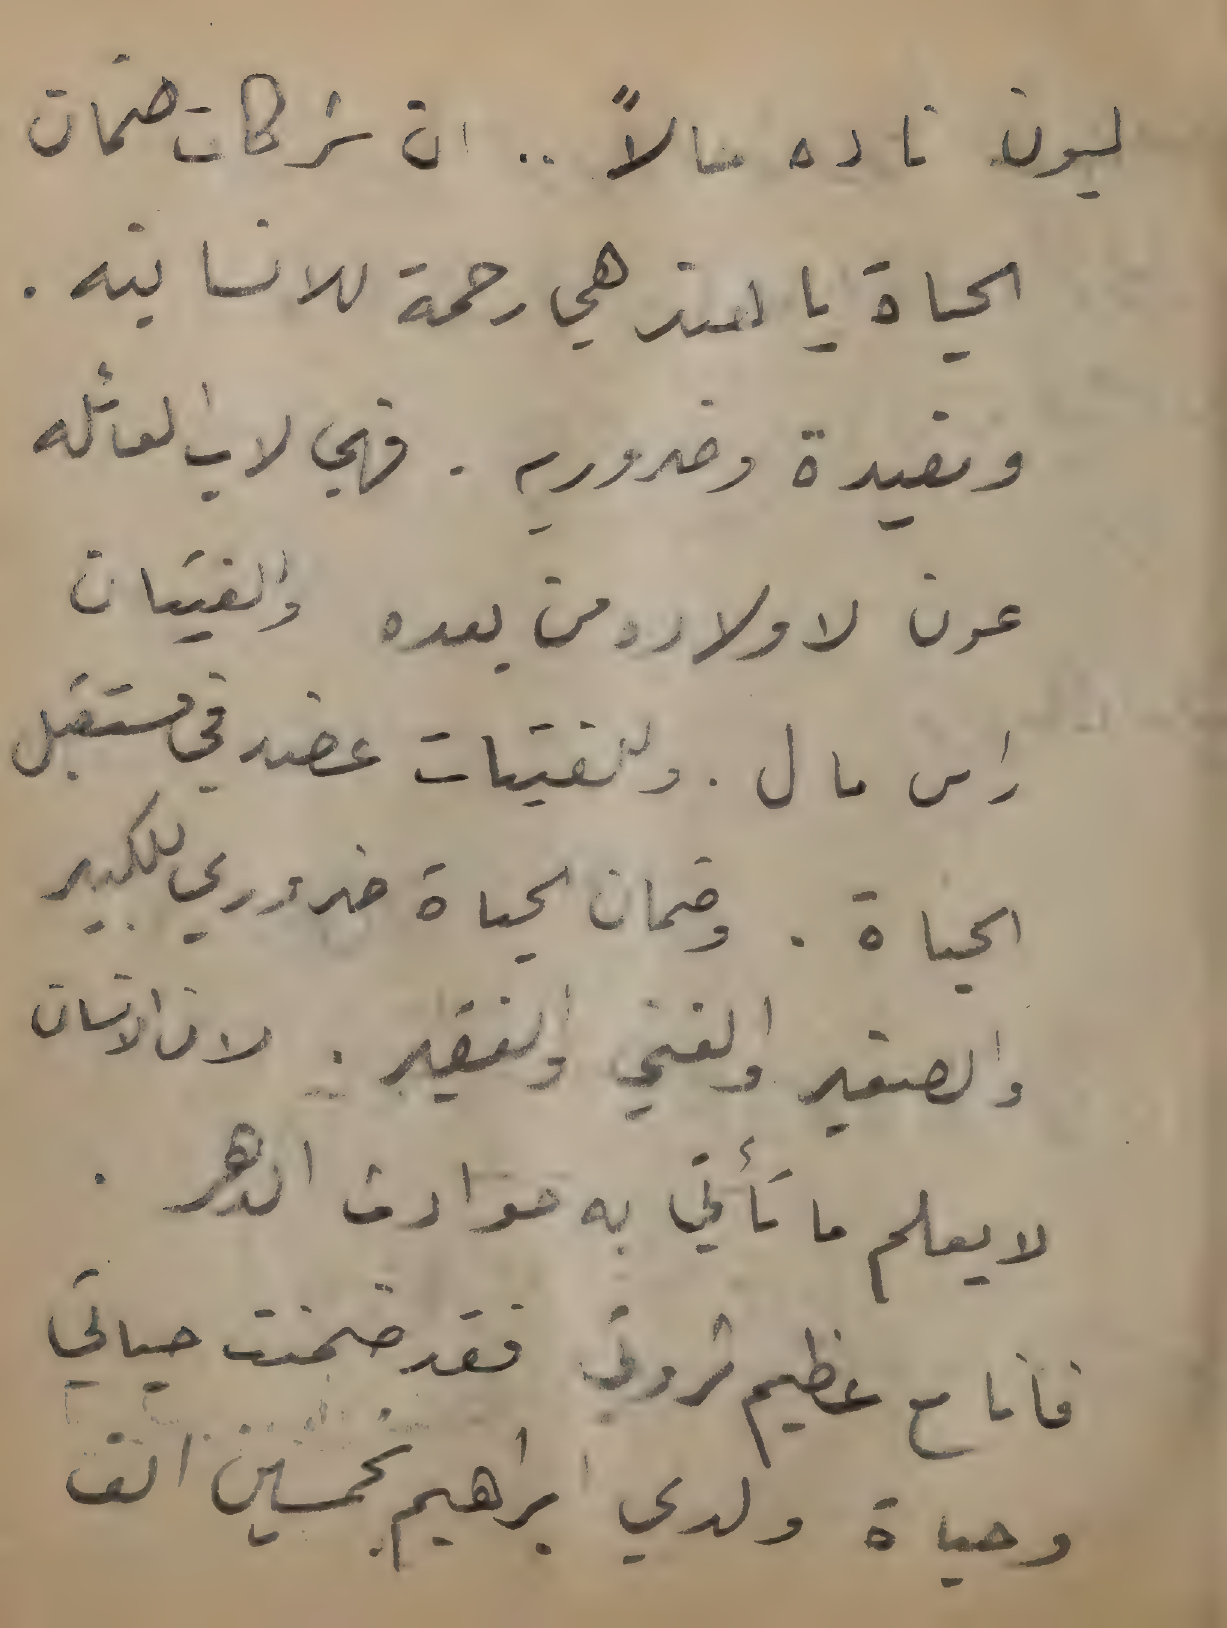 ليون ناده مالاً .. ان شركات ضمان
الحياة يا هند هي رحمة للانسانيه .
ومفيدة وضروريه . فهي لاب العائله
عون لاولاده من بعده وللفتيان
راس مال . وللفتيات عضد في مستقبل
الحياة . وضمان الحياة ضروري للكبير
والصغير والغني والفقير . لان الانسان
لا يعلم ما تأتي به حوادث الدهر .
فانا مع عظيم ثروتي فقد ضمنت حياتي
وحياة ولدي ابراهيم بخمسين الف